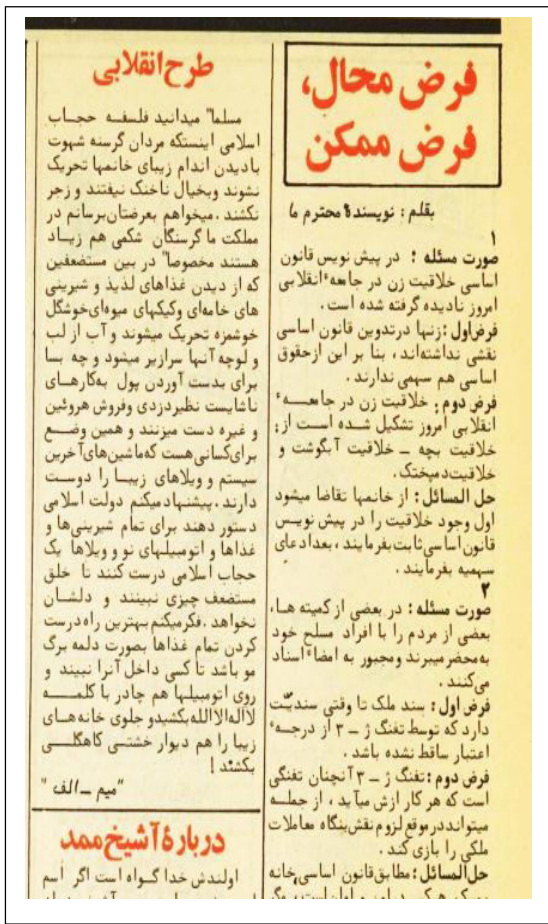 فرض محال،
فرض ممکن
بقلم : نویسندهٔ محترم ما
۱
صورت مسئله : در پیش نویس قانون
اساسی خلاقیت زن در جامعهٔ انقلابی
امروز نادیده گرفته شده است .
فرض‌اول : زنها درتدوین قانون اساسی
نقشی نداشته‌اند ، بنا بر این ازحقوق
اساسی هم سهمی ندارند .
فرض دوم : خلاقیت زن در جامعـــهٔ
انقلابی امروز تشکیل شده اســت از :
خلاقیت بچه ـ خلاقیت آبگوشت و
خلاقیت‌دمپختک .
حل المسائل : از خانمها تقاضا میشود
اول وجود خلاقیت را در پیش نویــس
قانون‌اساسی‌ثابت‌بفرمایند ، بعدادعای
سهمیه بفرمایند .
۲
صورت مسئله : در بعضی از کمیته هـا،
بعضی از مردم را با افراد مسلح خود
به‌محضرمیبرند ومجبور به امضاء اسناد
می‌کنند .
فرض اول : سند ملک تا وقتی سندیّت
دارد که توسط تفنگ ژ ـ ۳ از درجــهٔ
اعتبار ساقط نشده باشد .
فرض دوم : تفنگ ژ ـ ۳ آنچنان تفنگی
است که هر کار ازش میآید ، از جملــه
میتوانددرموقع لزوم نقش‌بنگاه معاملات
ملکی را بازی کند .
حل‌المسائل : مطابق‌قانون اساسی‌خانه
طرح انقلابی
مسلما" میدانید فلسفــه حجــاب
اسلامی اینستکه مردان گرسنه شهوت
بادیدن اندام زیبای خانمها تحریک
نشوند وبخیال ناخنک نیفتند و زجر
نکشند . میخواهم بعرضتان‌برسانم در
مملکت ما گرسنگان شکمی هم زیــاد
هستند مخصوصا" در بین مستضعفین
که از دیدن غذاهای لذیذ و شیرینی
های خامه‌ای وکیکهای میوه‌ای‌خوشگل
خوشمزه تحریک میشوند و آب از لب
و لوچه آنها سرازیر میشود و چه بسا
برای بدست آوردن پول به‌کارهــای
ناشایست نظیردزدی وفروش هروئین
و غیره دست میزنند و همین وضــع
برای‌کسانی هست که‌ماشین‌های‌آخرین
سیستم و ویلاهای زیبــا را دوســت
دارند . پیشنهادمیکنم دولت اسلامی
دستور دهند برای تمام شیرینی‌ها و
غذاها و اتومبیلهای نو و ویلاها یک
حجاب اسلامی درست کنند تا خلق
مستضعف چیزی نبینند و دلشــان
نخواهد . فکرمیکنم بهترین راه‌درست
کردن تمام غذاها بصورت دلمه برگ
مو باشد تا کسی داخل آنرا نبیند و
روی اتومبیلها هم چادر با کلمــــه
لااله‌الاالله‌بکشیدو جلوی خانه‌هـای
زیبا را هم دیوار خشتــی کاهگلــی
بکشند !
"میم ـ الف "
دربارهٔ آشیخ ممد
اولندش خدا گــواه است اگر اسم